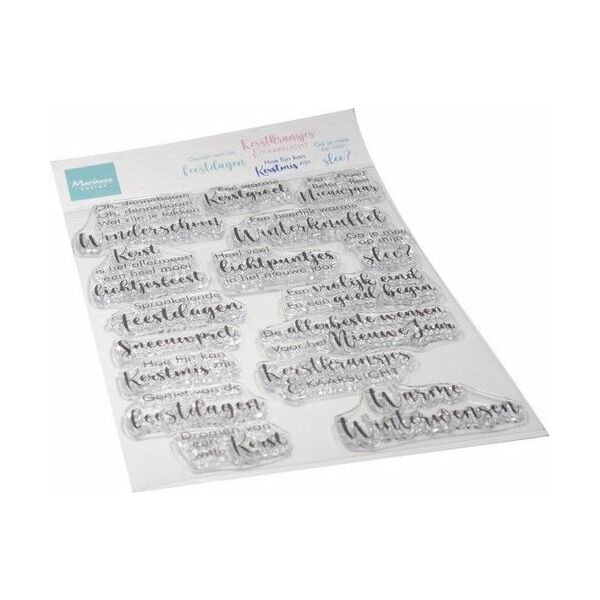 Marianne
Geniet van de
Feestdagen
Kerstkransjes
& KAARSLICHT
Hoe fijn kan
Kerstmis zijn
Ga je mee
op mijn
slee?
Oh, dennenboom
Oh, dennenboom
Wat zijn je takken
Wonderschoon
Een warme
Kerstgroet
Nieuwjaar
Een heerlijk warme
Winterknuffel
Ga je mee
op mijn
slee?
Kerst
is het allermeest
een heel mooi
lichtjesfeest
Heel veel
lichtpuntjes
in het nieuwe jaar
Een vrolijk eind
En een goed begin
Sprankelende
Feestdagen
De allerbeste wensen
Voor het Nieuwe Jaar
Sneeuwpret
Hoe fijn kan
Kerstmis zijn
Kerstkransjes
& KAARSLICHT
Geniet van de
feestdagen
Warme
Winterwensen
Dromen van
Kerst